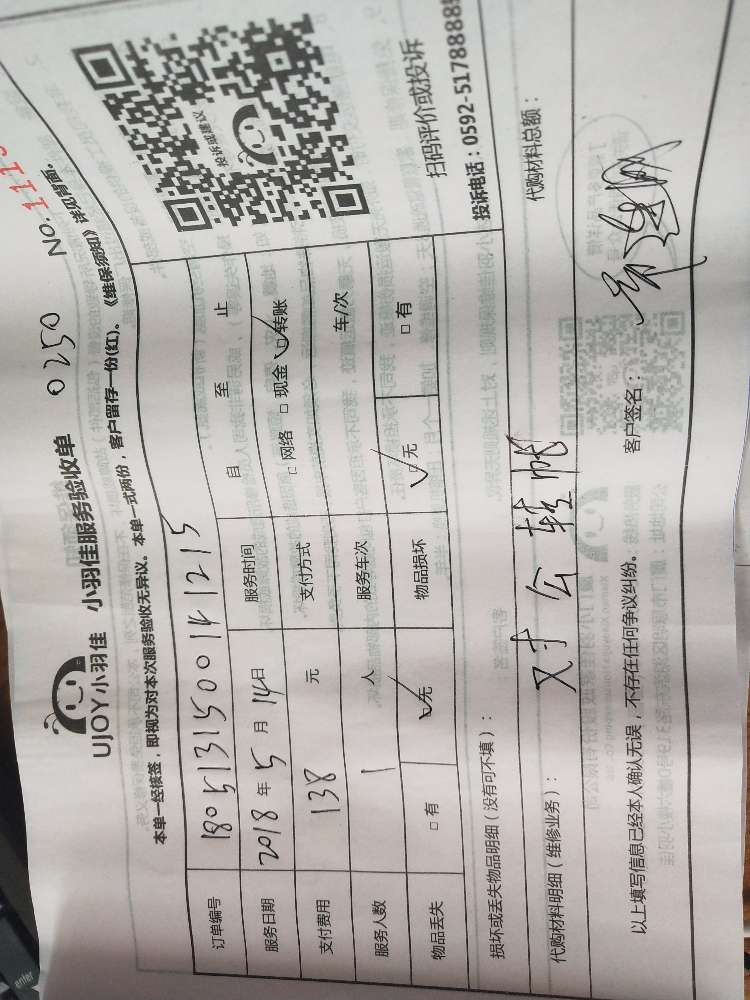 UJOY小羽佳 小羽佳服务验收单 0250 NO.111
本单一经核签，即视为对本次服务验收无异议。本单一式两份，客户留存一份(红)。《维保须知》详见背面。
订单编号 180513150014 1215
服务日期 2018年5月14日 服务时间 自 至 止
支付费用 138 元 支付方式 □网络 □现金 □转账
服务人数 1 人 服务车次 车/次
物品丢失 □有 □无 物品损坏 □无 □有
投诉或建议
扫码评价或投诉
投诉电话：0592-5178888
损坏或丢失物品明细（没有可不填）：
代购材料明细（维修业务）： 对公转帐 代购材料总额：
以上填写信息已经本人确认无误，不存在任何争议纠纷。 客户签名：
enter